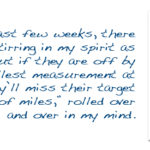 ast few weeks, there
tirring in my spirit as
ut if they are off by
lest measurement at
y'll miss their target
of miles," rolled over
and over in my mind.